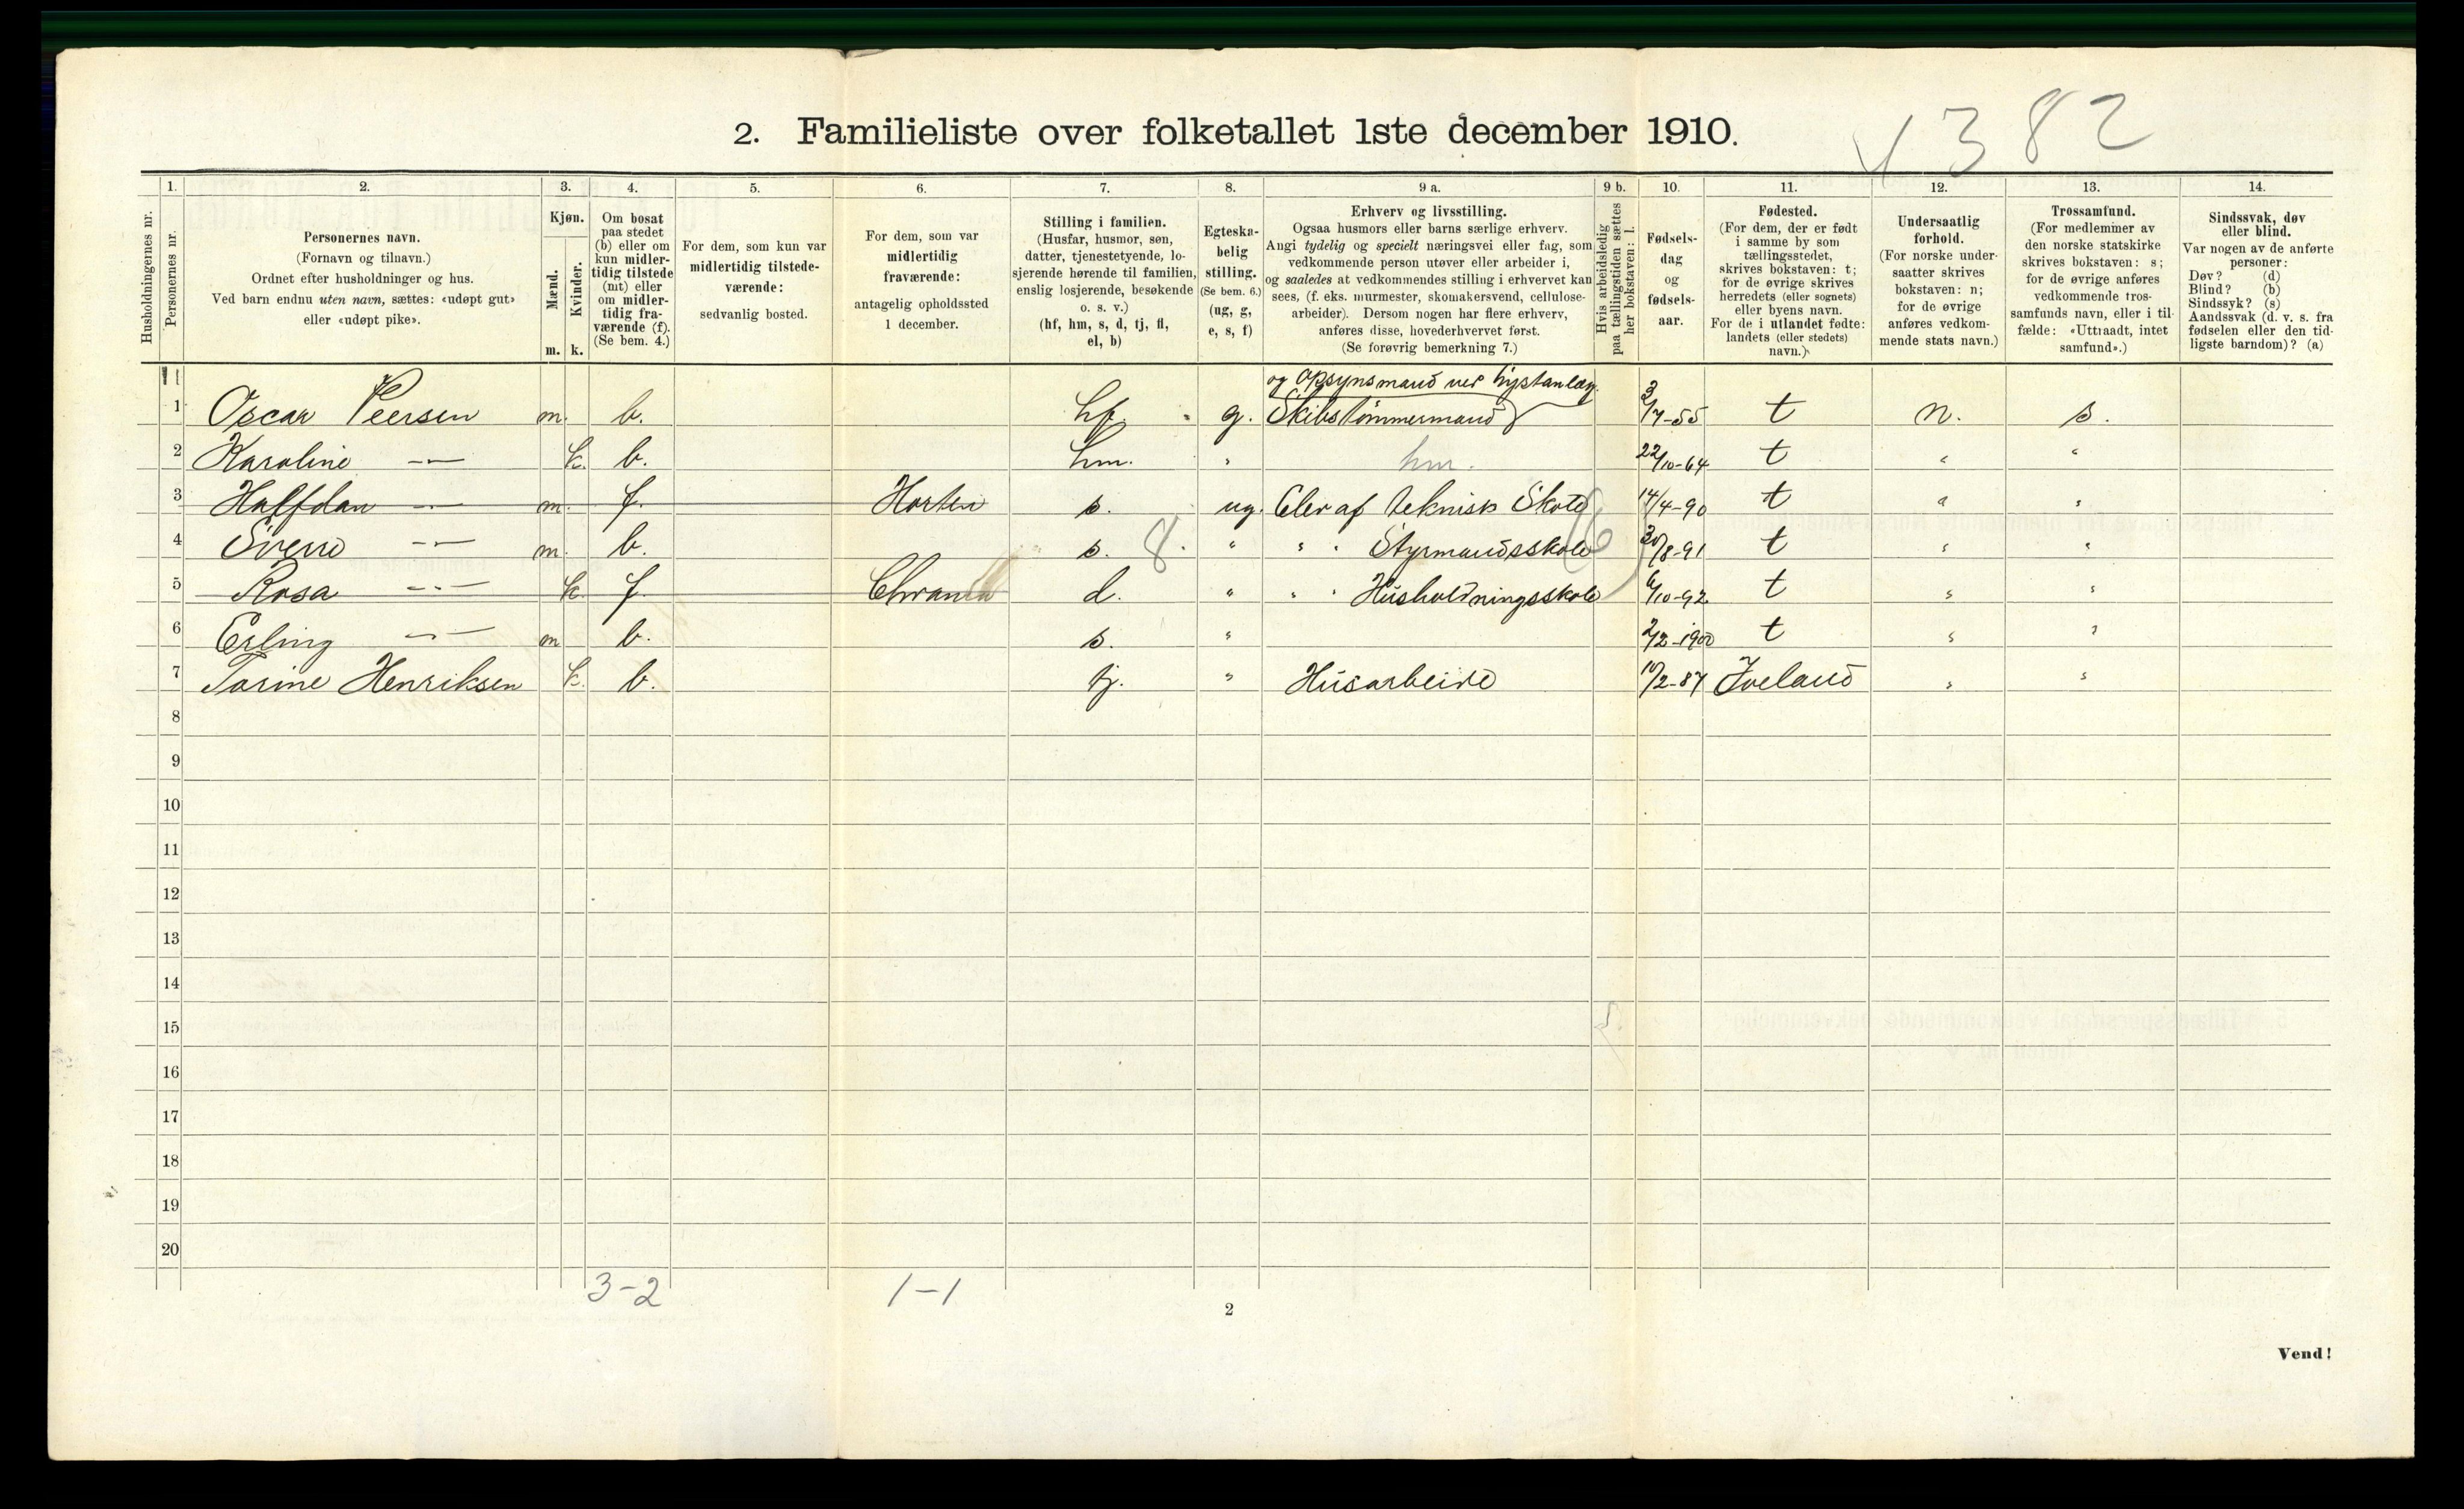 2. Familieliste over folketallet 1ste december 1910.
1382
1. 2. 3. 4. 5. 6. 7. 8. 9 a. 9 b. 10. 11. 12. 13. 14.
Husholdningernes nr.
Personernes nr.
Personernes navn.
(Fornavn og tilnavn.)
Ordnet efter husholdninger og hus.
Ved barn endnu uten navn, sættes: «udøpt gut»
eller «udøpt pike».
Kjøn.
Mænd.
Kvinder.
m. k.
Om bosat
paa stedet
(b) eller om
kun midler-
tidig tilstede
(mt) eller
om midler-
tidig fra-
værende (f).
(Se bem. 4.)
For dem, som kun var
midlertidig tilstede-
værende:
sedvanlig bosted.
For dem, som var
midlertidig
fraværende:
antagelig opholdssted
1 december.
Stilling i familien.
(Husfar, husmor, søn,
datter, tjenestetyende, lo-
sjerende hørende til familien,
enslig losjerende, besøkende
o. s. v.)
(hf, hm, s, d, tj, fl,
el, b)
Egteska-
belig
stilling.
(Se bem. 6.)
(ug, g,
e, s, f)
Erhverv og livsstilling.
Ogsaa husmors eller barns særlige erhverv.
Angi tydelig og specielt næringsvei eller fag, som
vedkommende person utøver eller arbeider i,
og saaledes at vedkommendes stilling i erhvervet kan
sees, (f. eks. murmester, skomakersvend, cellulose-
arbeider). Dersom nogen har flere erhverv,
anføres disse, hovederhvervet først.
(Se forøvrig bemerkning 7.)
Hvis arbeidsledig
paa tællingstiden sættes
her bokstaven: l.
Fødsels-
dag
og
fødsels-
aar.
Fødested.
(For dem, der er født
i samme by som
tællingsstedet,
skrives bokstaven: t;
for de øvrige skrives
herredets (eller sognets)
eller byens navn.
For de i utlandet fødte:
landets (eller stedets)
navn.)
Undersaatlig
forhold.
(For norske under-
saatter skrives
bokstaven: n;
for de øvrige
anføres vedkom-
mende stats navn.)
Trossamfund.
(For medlemmer av
den norske statskirke
skrives bokstaven: s;
for de øvrige anføres
vedkommende tros-
samfunds navn, eller i til-
fælde: «Uttraadt, intet
samfund».)
Sindssvak, døv
eller blind.
Var nogen av de anførte
personer:
Døv? (d)
Blind? (b)
Sindssyk? (s)
Aandssvak (d. v. s. fra
fødselen eller den tid-
ligste barndom)? (a)
og opsynsmand ved lystanlæg.
1 Oscar Peersen m. b. hf. g. Skibstømmermand 3/7-55 t n. s.
2 Karoline -"- k. b. hm. " hm. 22/10-64 t " "
3 Halfdan -"- m. f. Horten s. ug. Elev af teknisk Skole 14/4-90 t " "
4 Sverre -"- m. b. s. 8. " " " Styrmandsskole 30/8-91 t " "
5 Rosa -"- k. f. Chrania d. " " " Husholdningsskole 6/10-92 t " "
6 Erling -"- m b. s. " 2/2-1900 t " "
7 Torine Henriksen k. b. tj. " Husarbeide 10/2-87 Iveland " "
8
9
10
11
12
13
14
15
16
17
18
19
20
3-2 1-1
2
Vend!